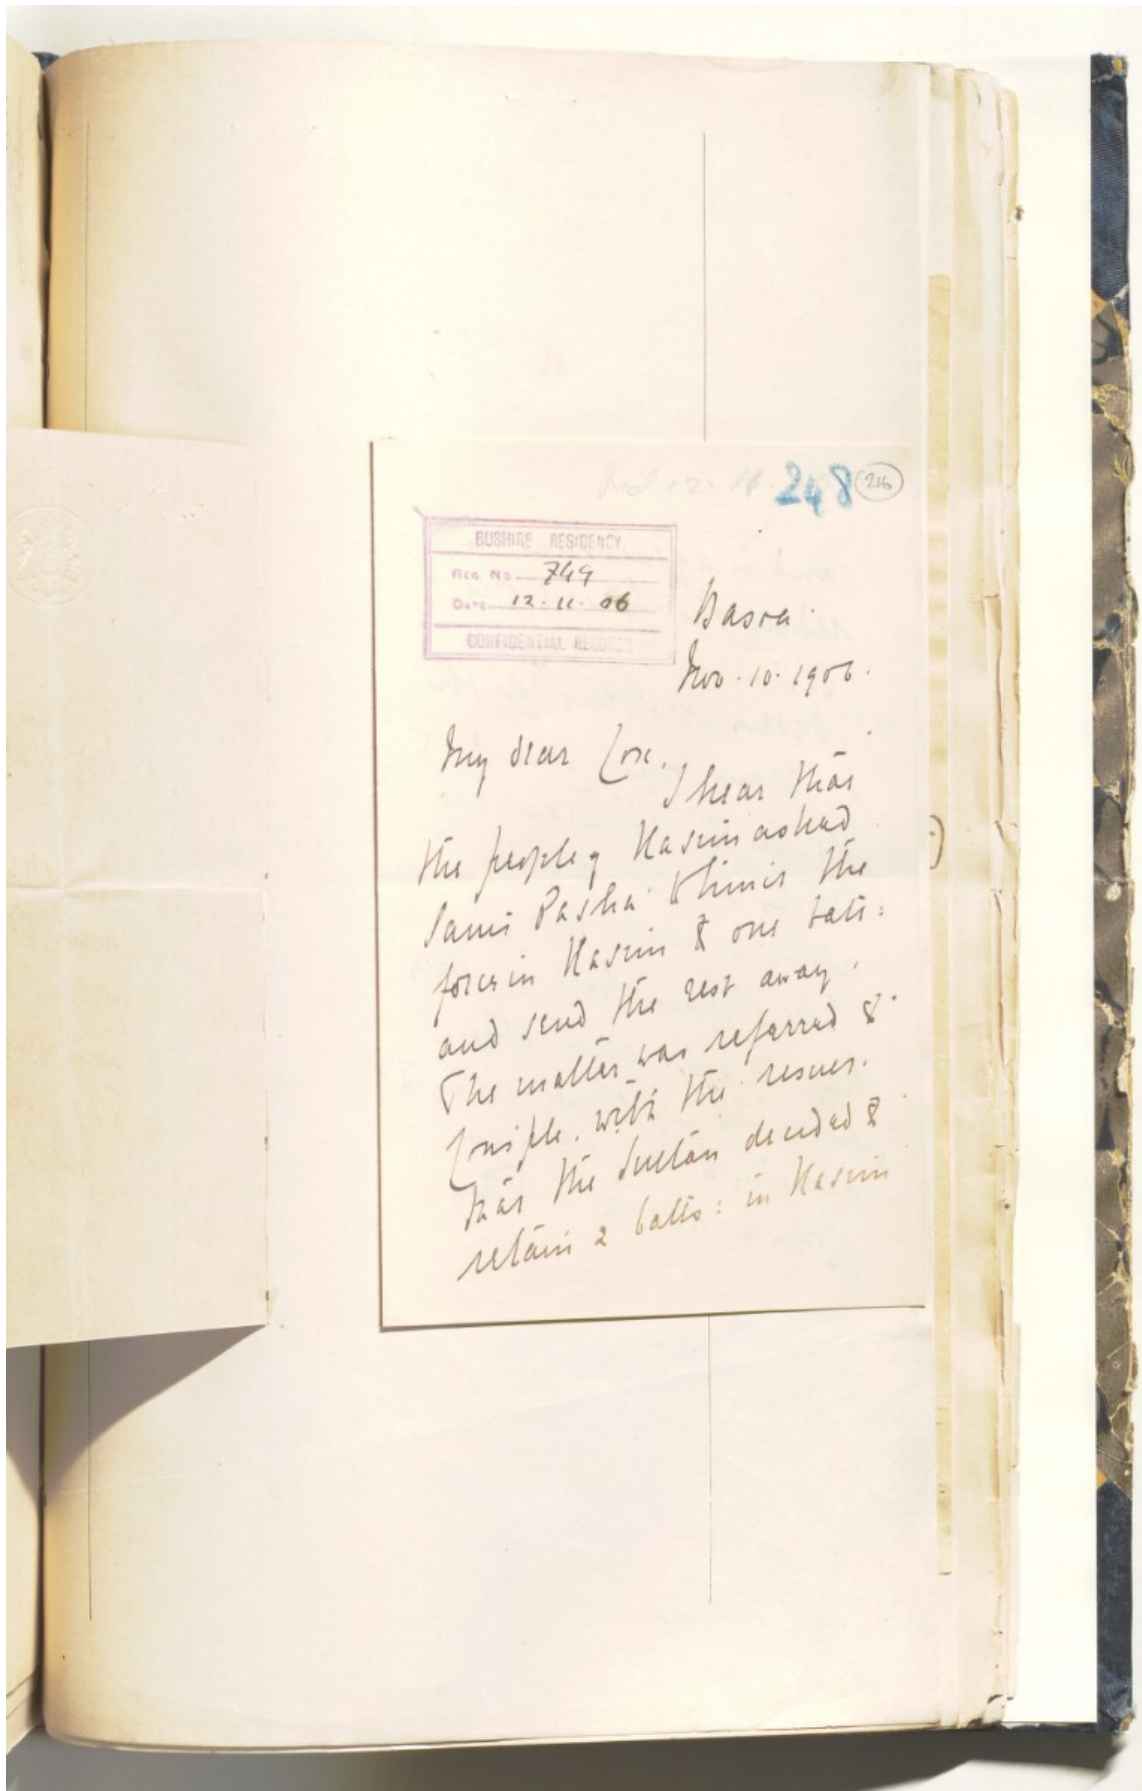 248 216
BUSHIRE RESIDENCY.
REG. No. 749
Date 12.11.06
CONFIDENTIAL RECORDS
Basra.
Nov. 10. 1906.
My dear Cox,
I hear that
the people of Kasim asked
Sami Pasha to limit the
force in Kasim to one batt:
and send the rest away.
The matter was referred to
Conple. with the result
that the Sultan decided to
retain 2 batts: in Kasim